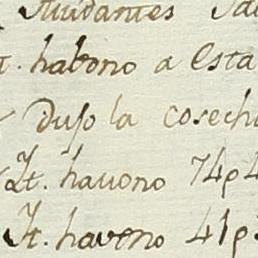 Ayudantes
habono a esta
Dujo la cosech
It. hauono 74p4
It. haveno 41p